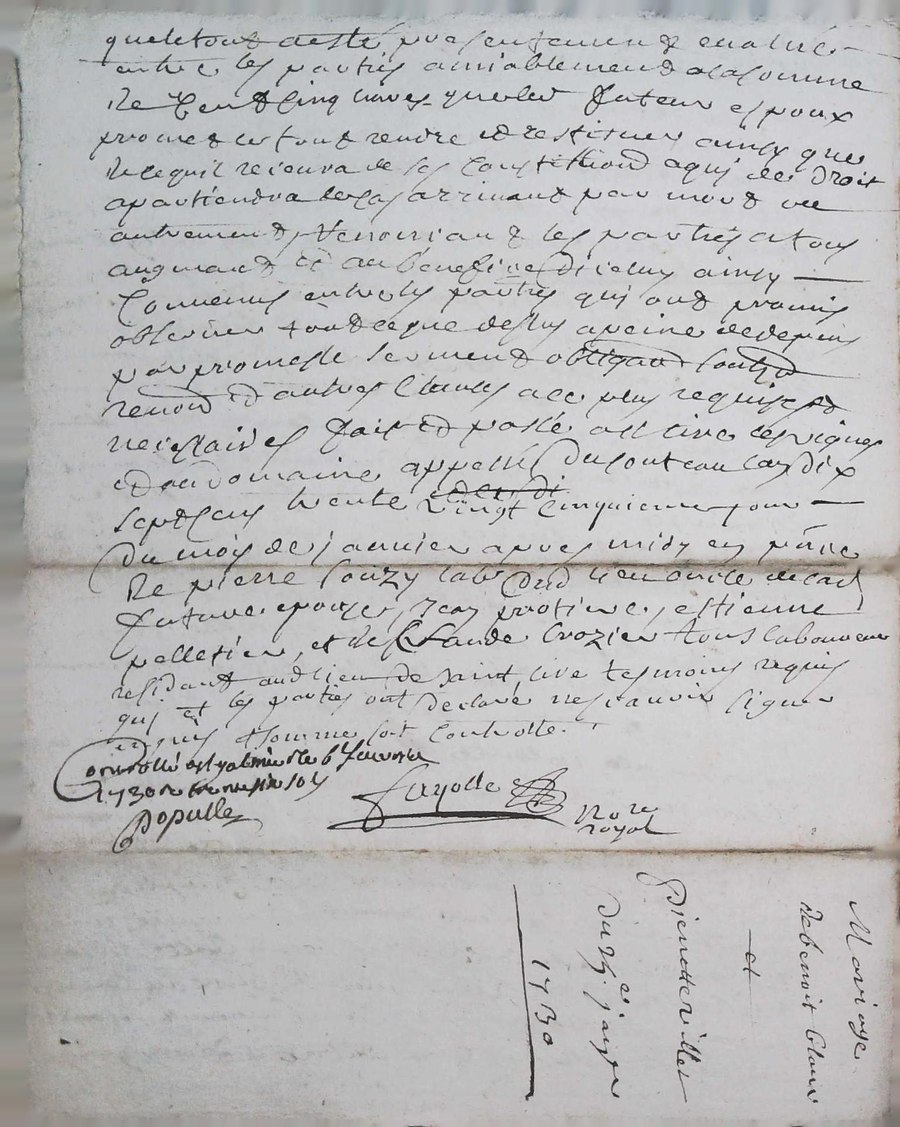 que le tout a esté presentement evalué
entre les parties amiablement a la somme
de cent cinq livres que led futeur espoux
promet le tout rendre et restituer ainsy que
de ce quil recevra de ses constitutions a qui de droit
apartiendra le cas arrivant par mort ou
autrement, les parties a tous
augment et au benefice diceluy ainsy
convenus entre les parties qui ont promis
observer tout ce que dessus a peine de despens
par promesse serment obligaon
renon et autres clauses a ce plus requises et
necessaires fait et passé a st cire les vignes
et au domaine appellé Du couteau lan dix
sept cens trente vingt cinquieme jour
Du mois de janvier apres midy en pnce
De pierre Couzy lab dud lieu oncle de lad
future epouse, jean protiere, estienne
pelletier, et de Claude Crozier tous laboureurs
residant aud lieu de saint cire tesmoins requis
qui et les parties ont declaré ne scavoir signer
enquis et sommé soit controllé.
Controllé a st galmier le 6e fevrier
1730 R sols
Populle
Fayolle Nore
royal
Mariage
De benoit Clair
et
Pierrette Villet
Du 25e janver
1730